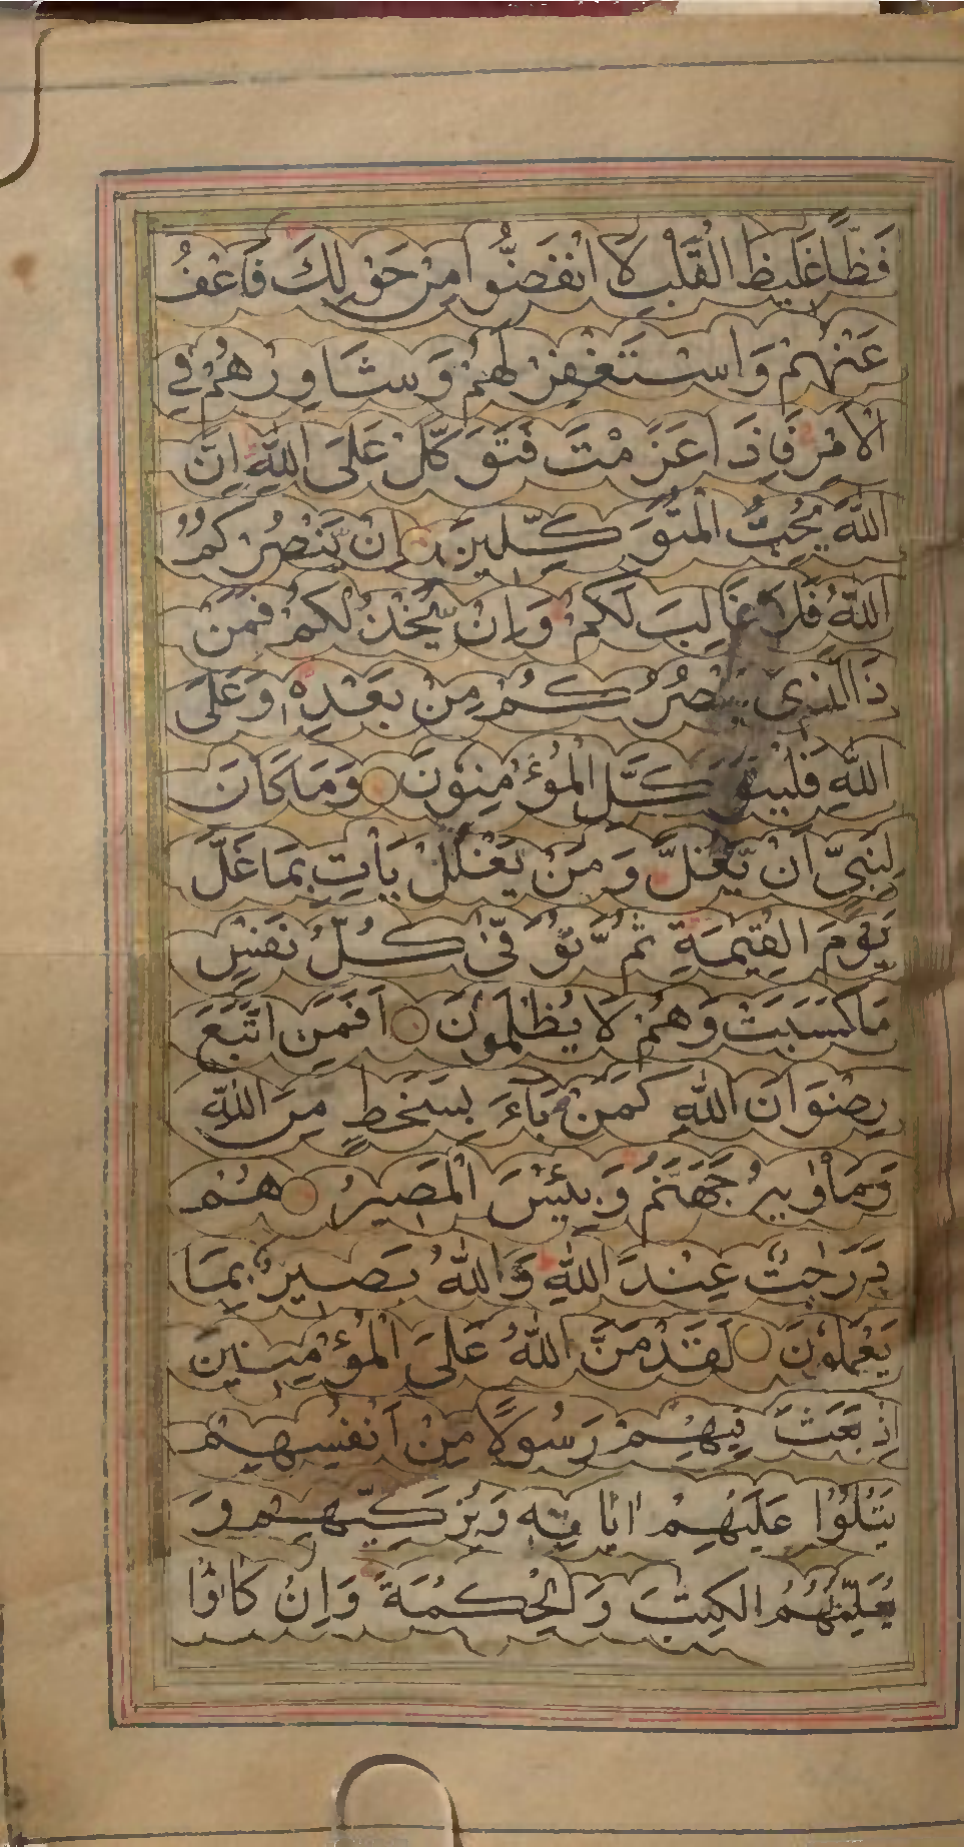 فَظًّا غَلِيظَ الْقَلْبِ لَا انْفَضُّوا مِنْ حَوْلِكَ فَاعْفُ
عَنْهُمْ وَاسْتَغْفِرْ لَهُمْ وَشَاوِرْهُمْ فِي
الْاَمْرِ فَاِذَا عَزَمْتَ فَتَوَكَّلْ عَلَى اللّٰهِ اِنَّ
اللّٰهَ يُحِبُّ الْمُتَوَكِّلِينَ اِنْ يَّنْصُرْكُمُ
اللّٰهُ فَلَا غَالِبَ لَكُمْ وَاِنْ يَّخْذُلْكُمْ فَمَنْ
ذَا الَّذِى يَنْصُرُكُمْ مِنْ بَعْدِهٖ وَعَلَى
اللّٰهِ فَلْيَتَوَكَّلِ الْمُؤْمِنُونَ وَمَا كَانَ
لِنَبِىٍّ اَنْ يَّغُلَّ وَمَنْ يَغْلُلْ يَأْتِ بِمَا غَلَّ
يَوْمَ الْقِيٰمَةِ ثُمَّ تُوَفّٰى كُلُّ نَفْسٍ
مَا كَسَبَتْ وَهُمْ لَا يُظْلَمُونَ اَفَمَنِ اتَّبَعَ
رِضْوَانَ اللّٰهِ كَمَنْ بَآءَ بِسَخَطٍ مِنَ اللّٰهِ
وَمَأْوٰىهُ جَهَنَّمُ وَبِئْسَ الْمَصِيرُ هُمْ
دَرَجٰتٌ عِنْدَ اللّٰهِ وَاللّٰهُ بَصِيرٌ بِمَا
يَعْمَلُونَ لَقَدْ مَنَّ اللّٰهُ عَلَى الْمُؤْمِنِينَ
اِذْ بَعَثَ فِيهِمْ رَسُولًا مِنْ اَنْفُسِهِمْ
يَتْلُوْا عَلَيْهِمْ اٰيَاتِهٖ وَيُزَكِّيهِمْ وَ
يُعَلِّمُهُمُ الْكِتٰبَ وَالْحِكْمَةَ وَاِنْ كَانُوْا